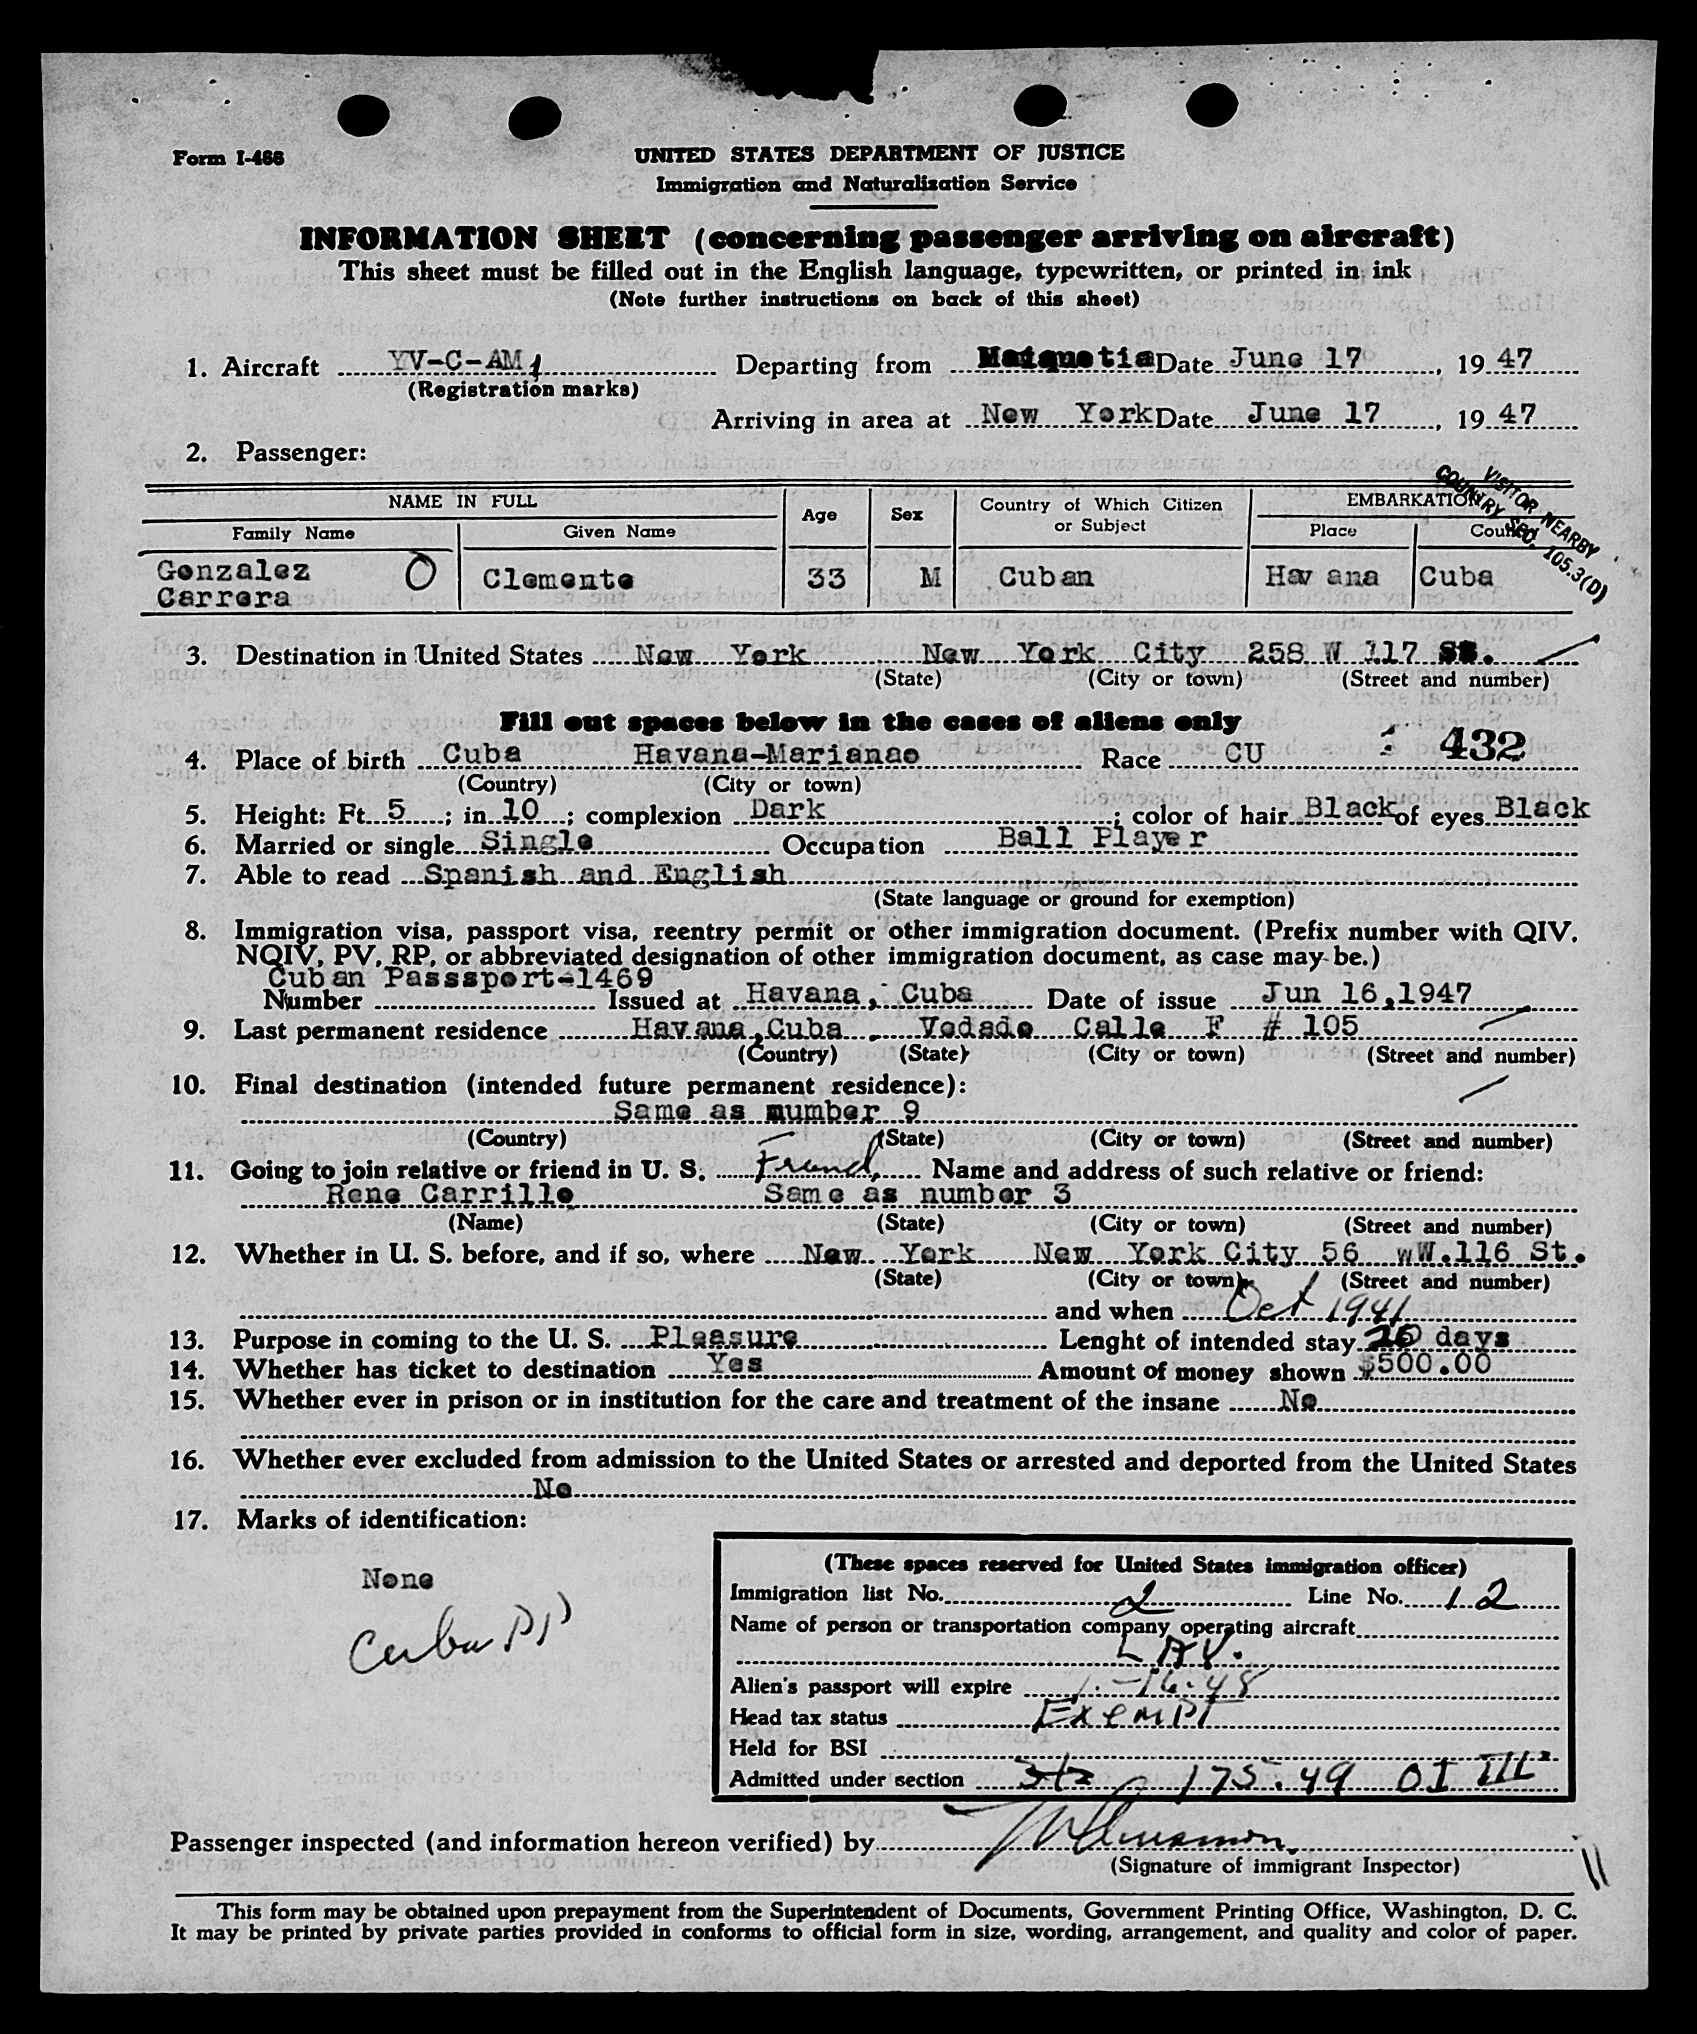 Form I-466
UNITED STATES DEPARTMENT OF JUSTICE
Immigration and Naturalization Service
INFORMATION SHEET (concerning passenger arriving on aircraft)
This sheet must be filled out in the English language, typewritten, or printed in ink
(Note further instructions on back of this sheet)
1. Aircraft YV-C-AM1 Departing from Maiquetia Date June 17, 19 47
(Registration marks)
Arriving in area at New York Date June 17, 19 47
2. Passenger:
VISITOR NEARBY
COUNTRY SEC. 105.3(D)
NAME IN FULL Age Sex Country of Which Citizen or Subject EMBARKATION
Family Name Given Name Place Country
Gonzalez Carrera O Clemente 33 M Cuban Havana Cuba
3. Destination in United States New York New York City 258 W 117 St.
(State) (City or town) (Street and number)
Fill out spaces below in the cases of aliens only
4. Place of birth Cuba Havana-Marianao Race CU 432
(Country) (City or town)
5. Height: Ft. 5; in. 10; complexion Dark; color of hair Black of eyes Black
6. Married or single Single Occupation Ball Player
7. Able to read Spanish and English
(State language or ground for exemption)
8. Immigration visa, passport visa, reentry permit or other immigration document. (Prefix number with QIV,
NQIV, PV, RP, or abbreviated designation of other immigration document, as case may be.)
Cuban Passsport-1469
Number Issued at Havana, Cuba Date of issue Jun 16,1947
9. Last permanent residence Havana,Cuba, Vedado Calle F # 105
(Country) (State) (City or town) (Street and number)
10. Final destination (intended future permanent residence):
Same as number 9
(Country) (State) (City or town) (Street and number)
11. Going to join relative or friend in U. S. Friend, Name and address of such relative or friend:
Rene Carrillo Same as number 3
(Name) (State) (City or town) (Street and number)
12. Whether in U. S. before, and if so, where New York New York City 56 wW.116 St.
(State) (City or town) (Street and number)
and when Oct 1941
13. Purpose in coming to the U. S. Pleasure Lenght of intended stay days
14. Whether has ticket to destination Yes Amount of money shown $500.00
15. Whether ever in prison or in institution for the care and treatment of the insane No
16. Whether ever excluded from admission to the United States or arrested and deported from the United States
No
17. Marks of identification:
None
Cuba PP
(These spaces reserved for United States immigration officer)
Immigration list No. 2 Line No. 12
Name of person or transportation company operating aircraft
LAV.
Alien's passport will expire -16-48
Head tax status Exempt
Held for BSI
Admitted under section 3(2 175.49 OI III
Passenger inspected (and information hereon verified) by
(Signature of immigrant Inspector)
This form may be obtained upon prepayment from the Superintendent of Documents, Government Printing Office, Washington, D. C.
It may be printed by private parties provided in conforms to official form in size, wording, arrangement, and quality and color of paper.